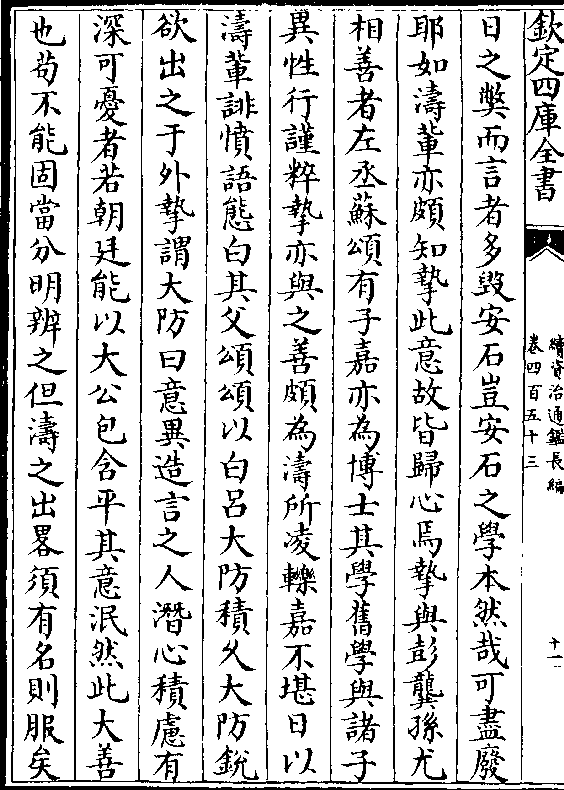 欽定四庫全書
續資治通鑑長編
卷四百五十三
十一
日之弊而言者多毀安石豈安石之學本然哉可盡廢
耶如濤輩亦頗知摯此意故皆歸心焉摯與彭龔孫尤
相善者左丞蘇頌有子嘉亦為博士其學舊學與諸子
異性行謹粹摯亦與之善頗為濤所凌轢嘉不堪日以
濤輩誹憤語態白其父頌頌以白呂大防積久大防銳
欲出之于外摯謂大防曰意異造言之人潛心積慮有
深可憂者若朝廷能以大公包含平其意泯然此大善
也苟不能固當分明辨之但濤之出畧須有名則服矣